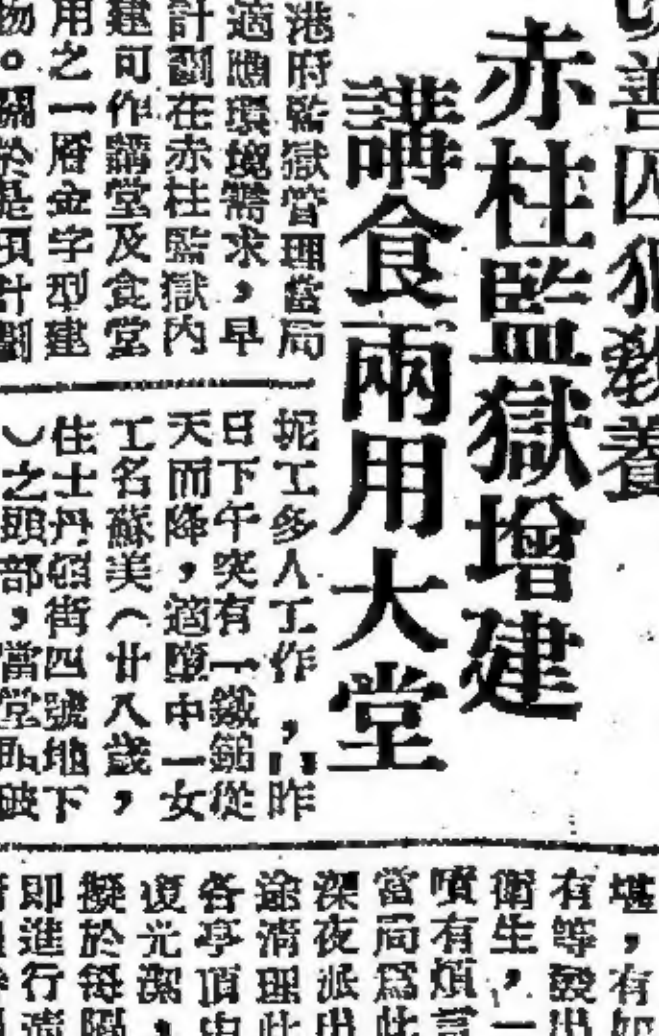 善囚犯教養
赤柱監獄增建
講食兩用大堂
港府監獄管理當局
適應環境需求，早
計劃在赤柱監獄內
建可作講堂及食堂
用之一層金字型建
物。關於是項計劃
坭工多人工作，昨
日下午突有一鐵鎚從
天而降，適墮中一女
工名蘇美（廿八歲，
住士丹頓街四號地下
）之頭部，當堂頭破
堪，有如
有等發出
衛生，一
嘖有煩言
當局為此
深夜派出
途清理此
各亭頂
復光潔，
擬於每隔
即進行清